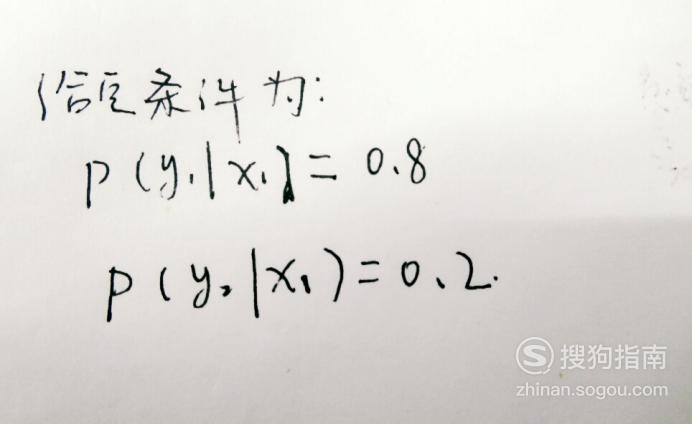 给定条件为:
p(y₁|x₁)=0.8
p(y₂|x₁)=0.2.
搜狗指南
zhinan.sogou.com